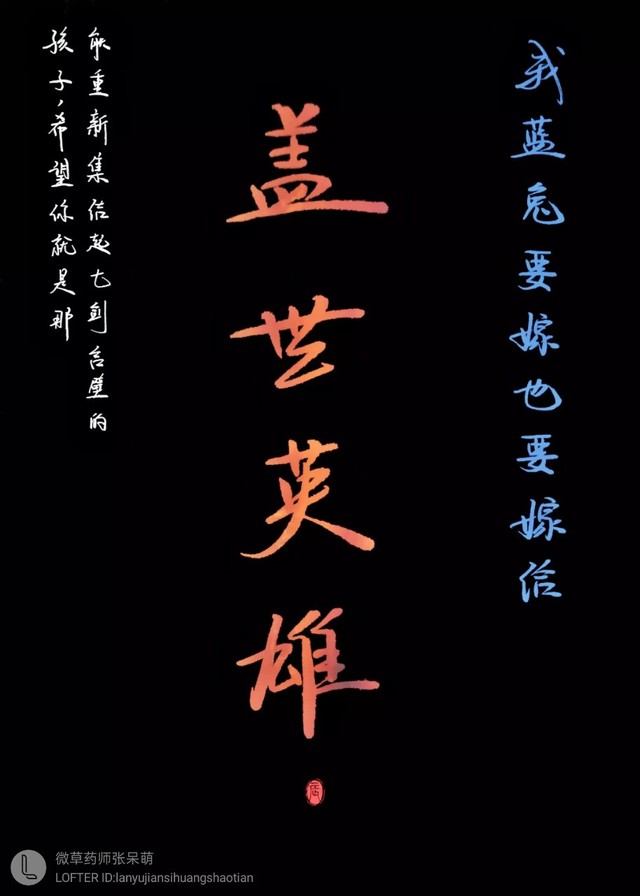 我蓝兔要嫁也要嫁给
盖世英雄
孩子,希望你就是那
能重新集结起七剑合璧的
微草药师张呆萌
LOFTER ID:lanyujiansihuangshaotian